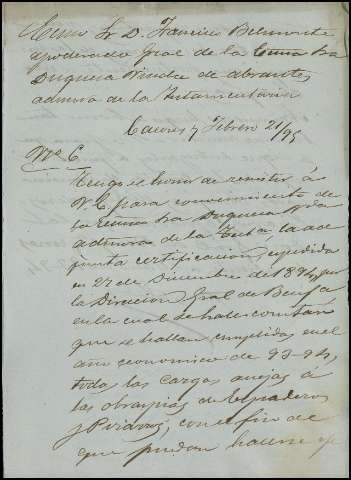 Exmo Sr D. Francisco Belmonte
apoderado Gral de la Exma Sra
Duquesa Viuda de Abrantes,
admora de la Testamentaria
Caceres y Febrero 21/95
Tengo el honor de remitir á
V. E. para conocimiento de
la Exma Sra Duquesa Vda
admora de la Testa, la ad
junta certificacion, expedida
en 22 de Diciembre de 1894, por
la Direccion Gral de Benefa
en la cual se hace constar
que se hallan cumplidas en el
año economico de 93-94,
todas las cargas anejas á
las obras pias de
y con el fin de
que puedan hacerse